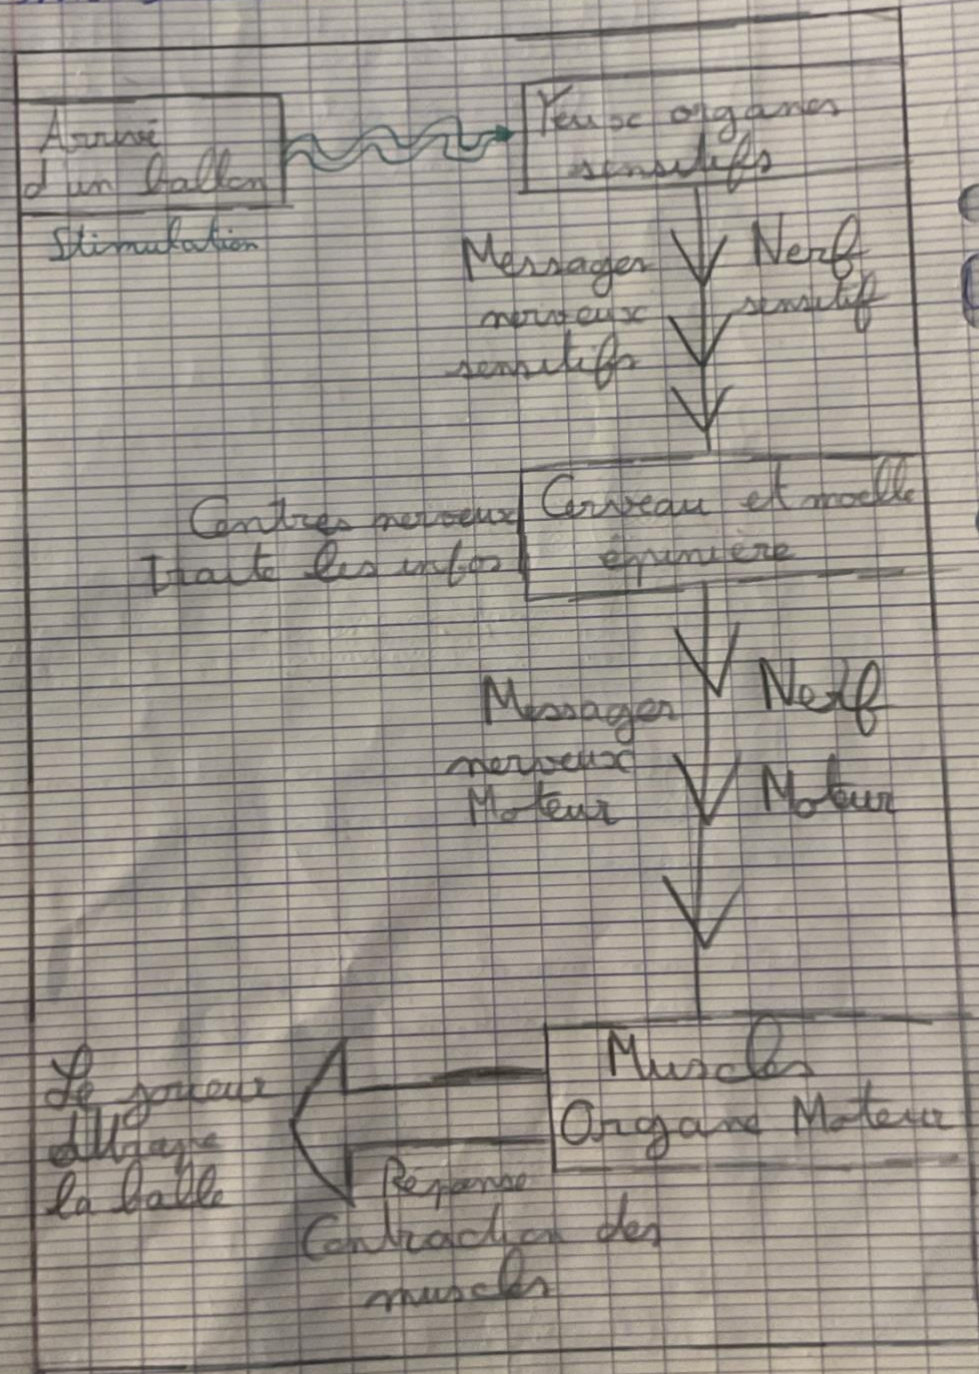 Arrivé
d'un ballon
Stimulation
Yeux organes
sensitifs
Messages
nerveux
sensitifs
Nerf
sensitif
Centres nerveux
traite les infos
Cerveau et moelle
épinière
Messages
nerveux
Moteur
Nerf
Moteur
Muscles
Organe Moteur
Le joueur
la balle
Réponse
Contraction des
muscles